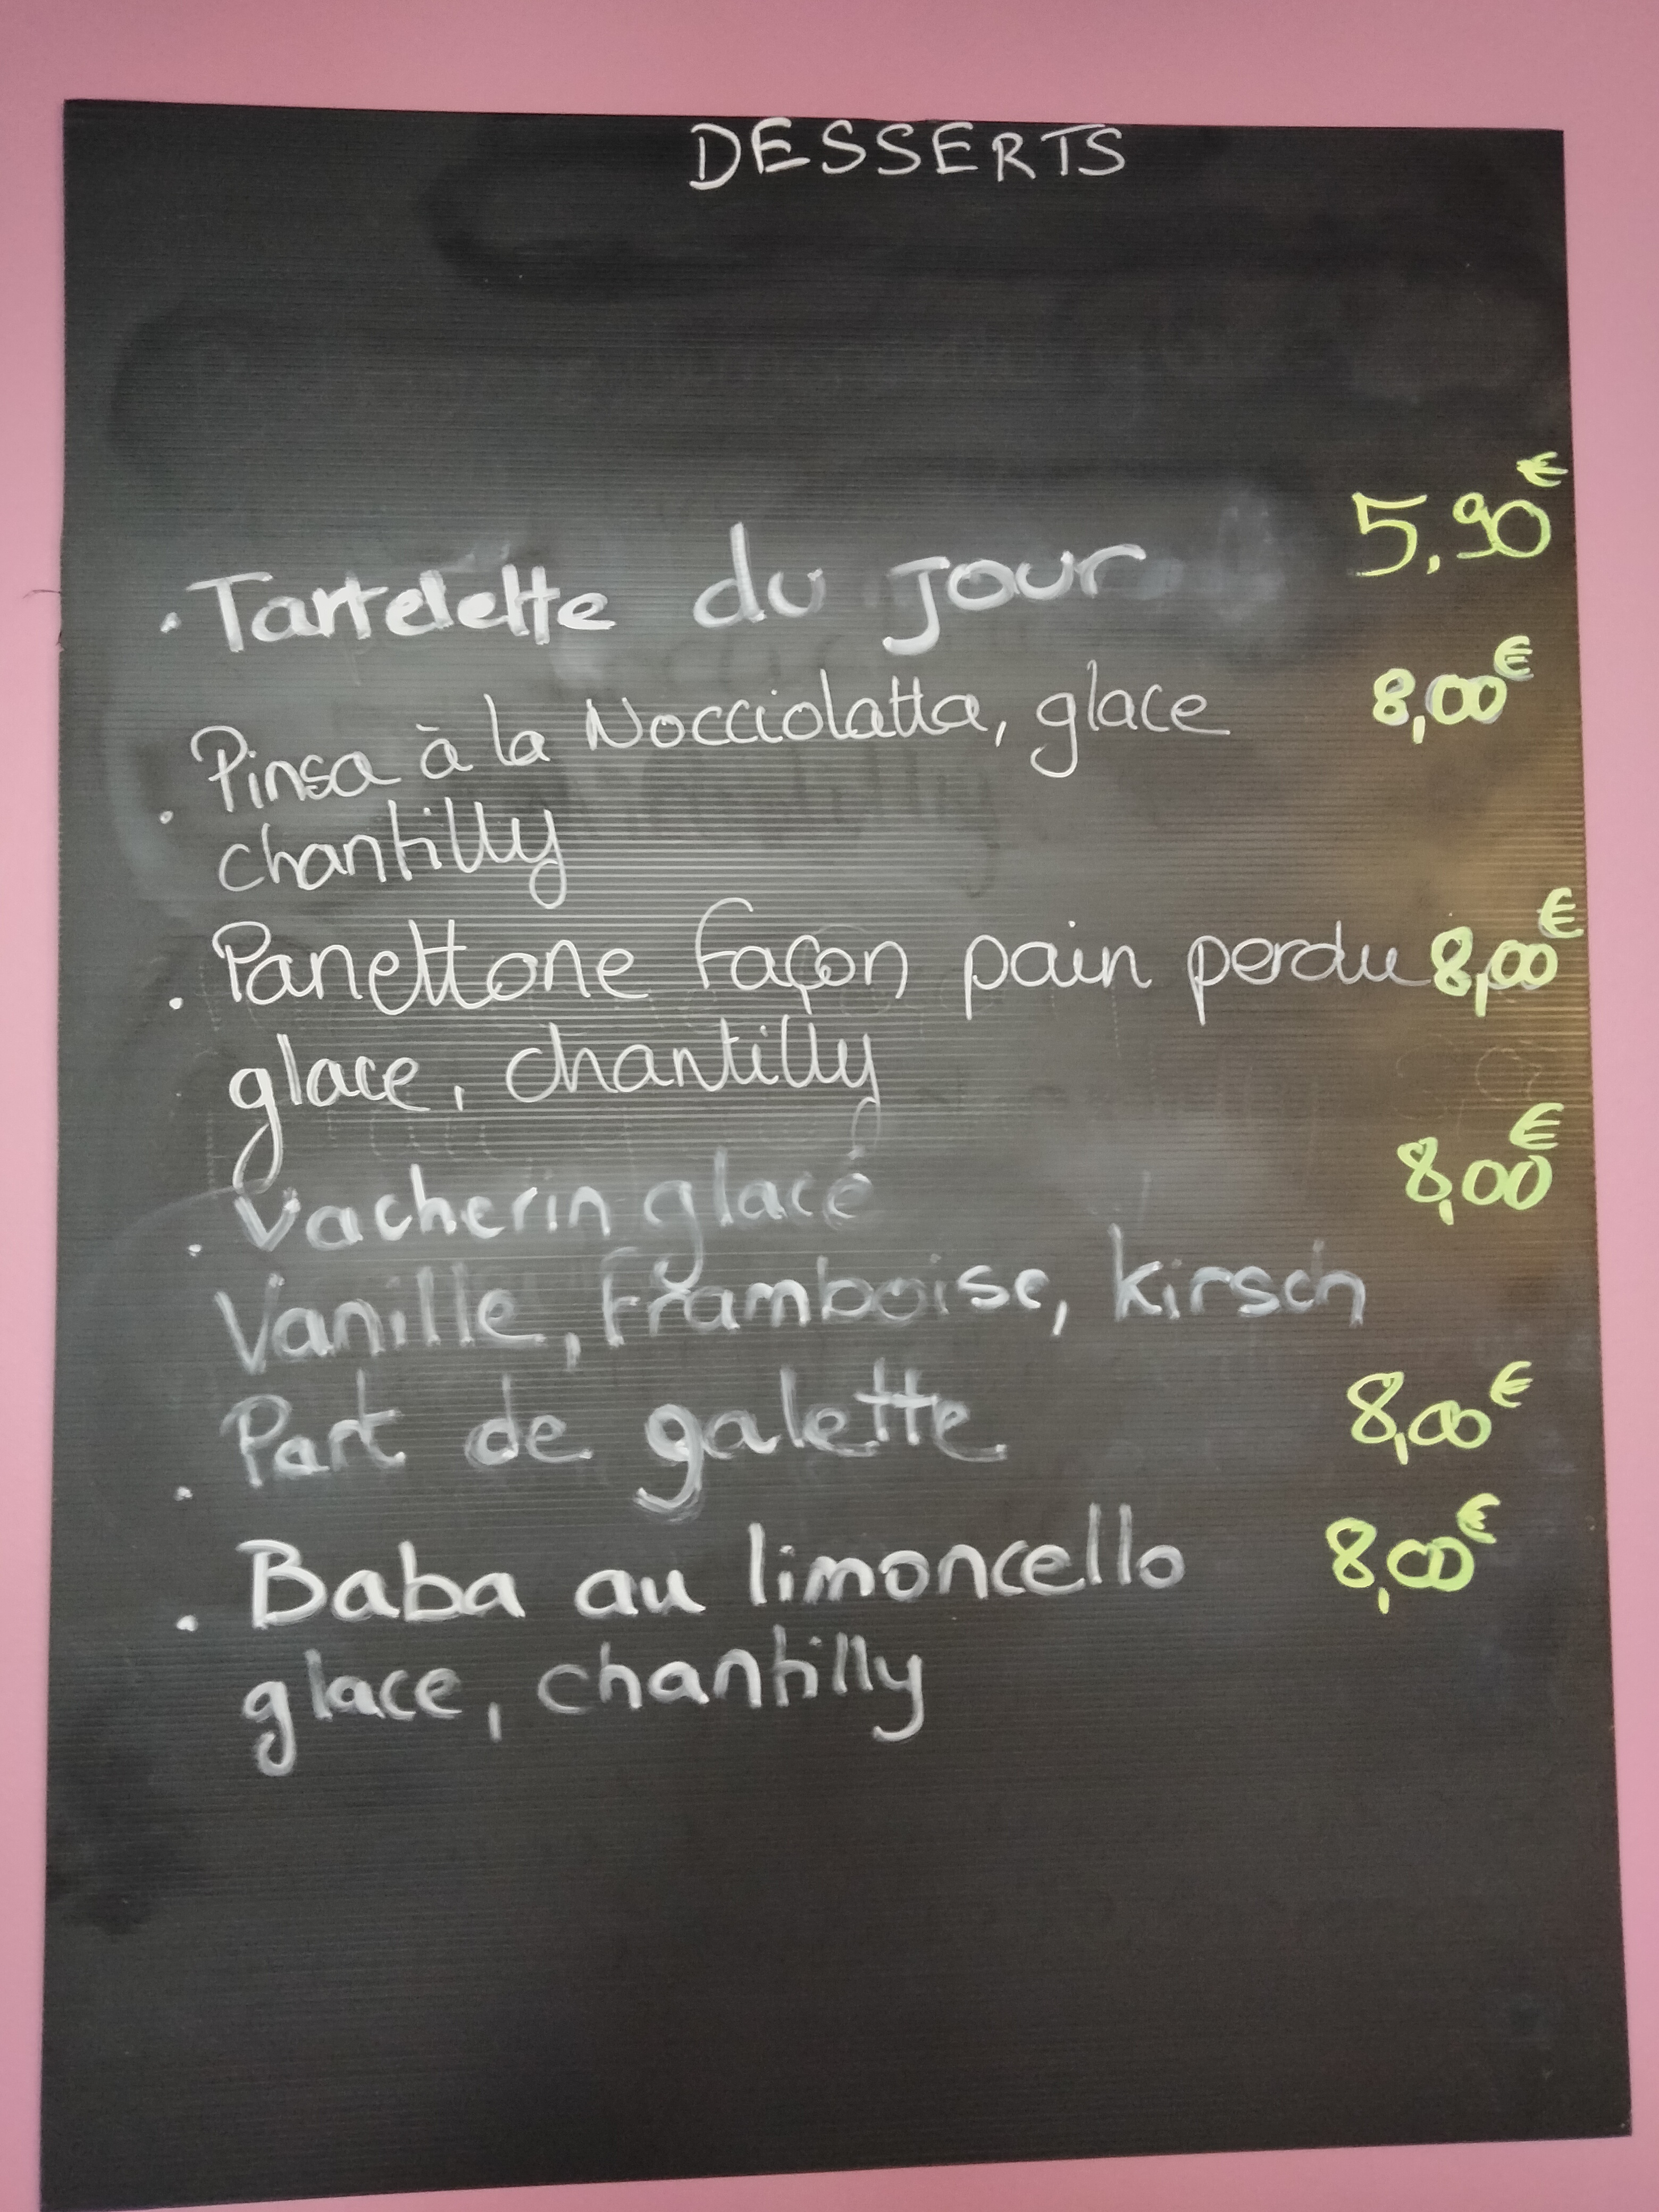 DESSERTS
. Tartelette du jour 5,90€
. Pinsa à la Nocciolatta, glace 8,00€
chantilly
. Panettone façon pain perdu 8,00€
glace, chantilly
. Vacherin glacé 8,00€
Vanille, framboise, kirsch
. Part de galette 8,00€
. Baba au limoncello 8,00€
glace, chantilly